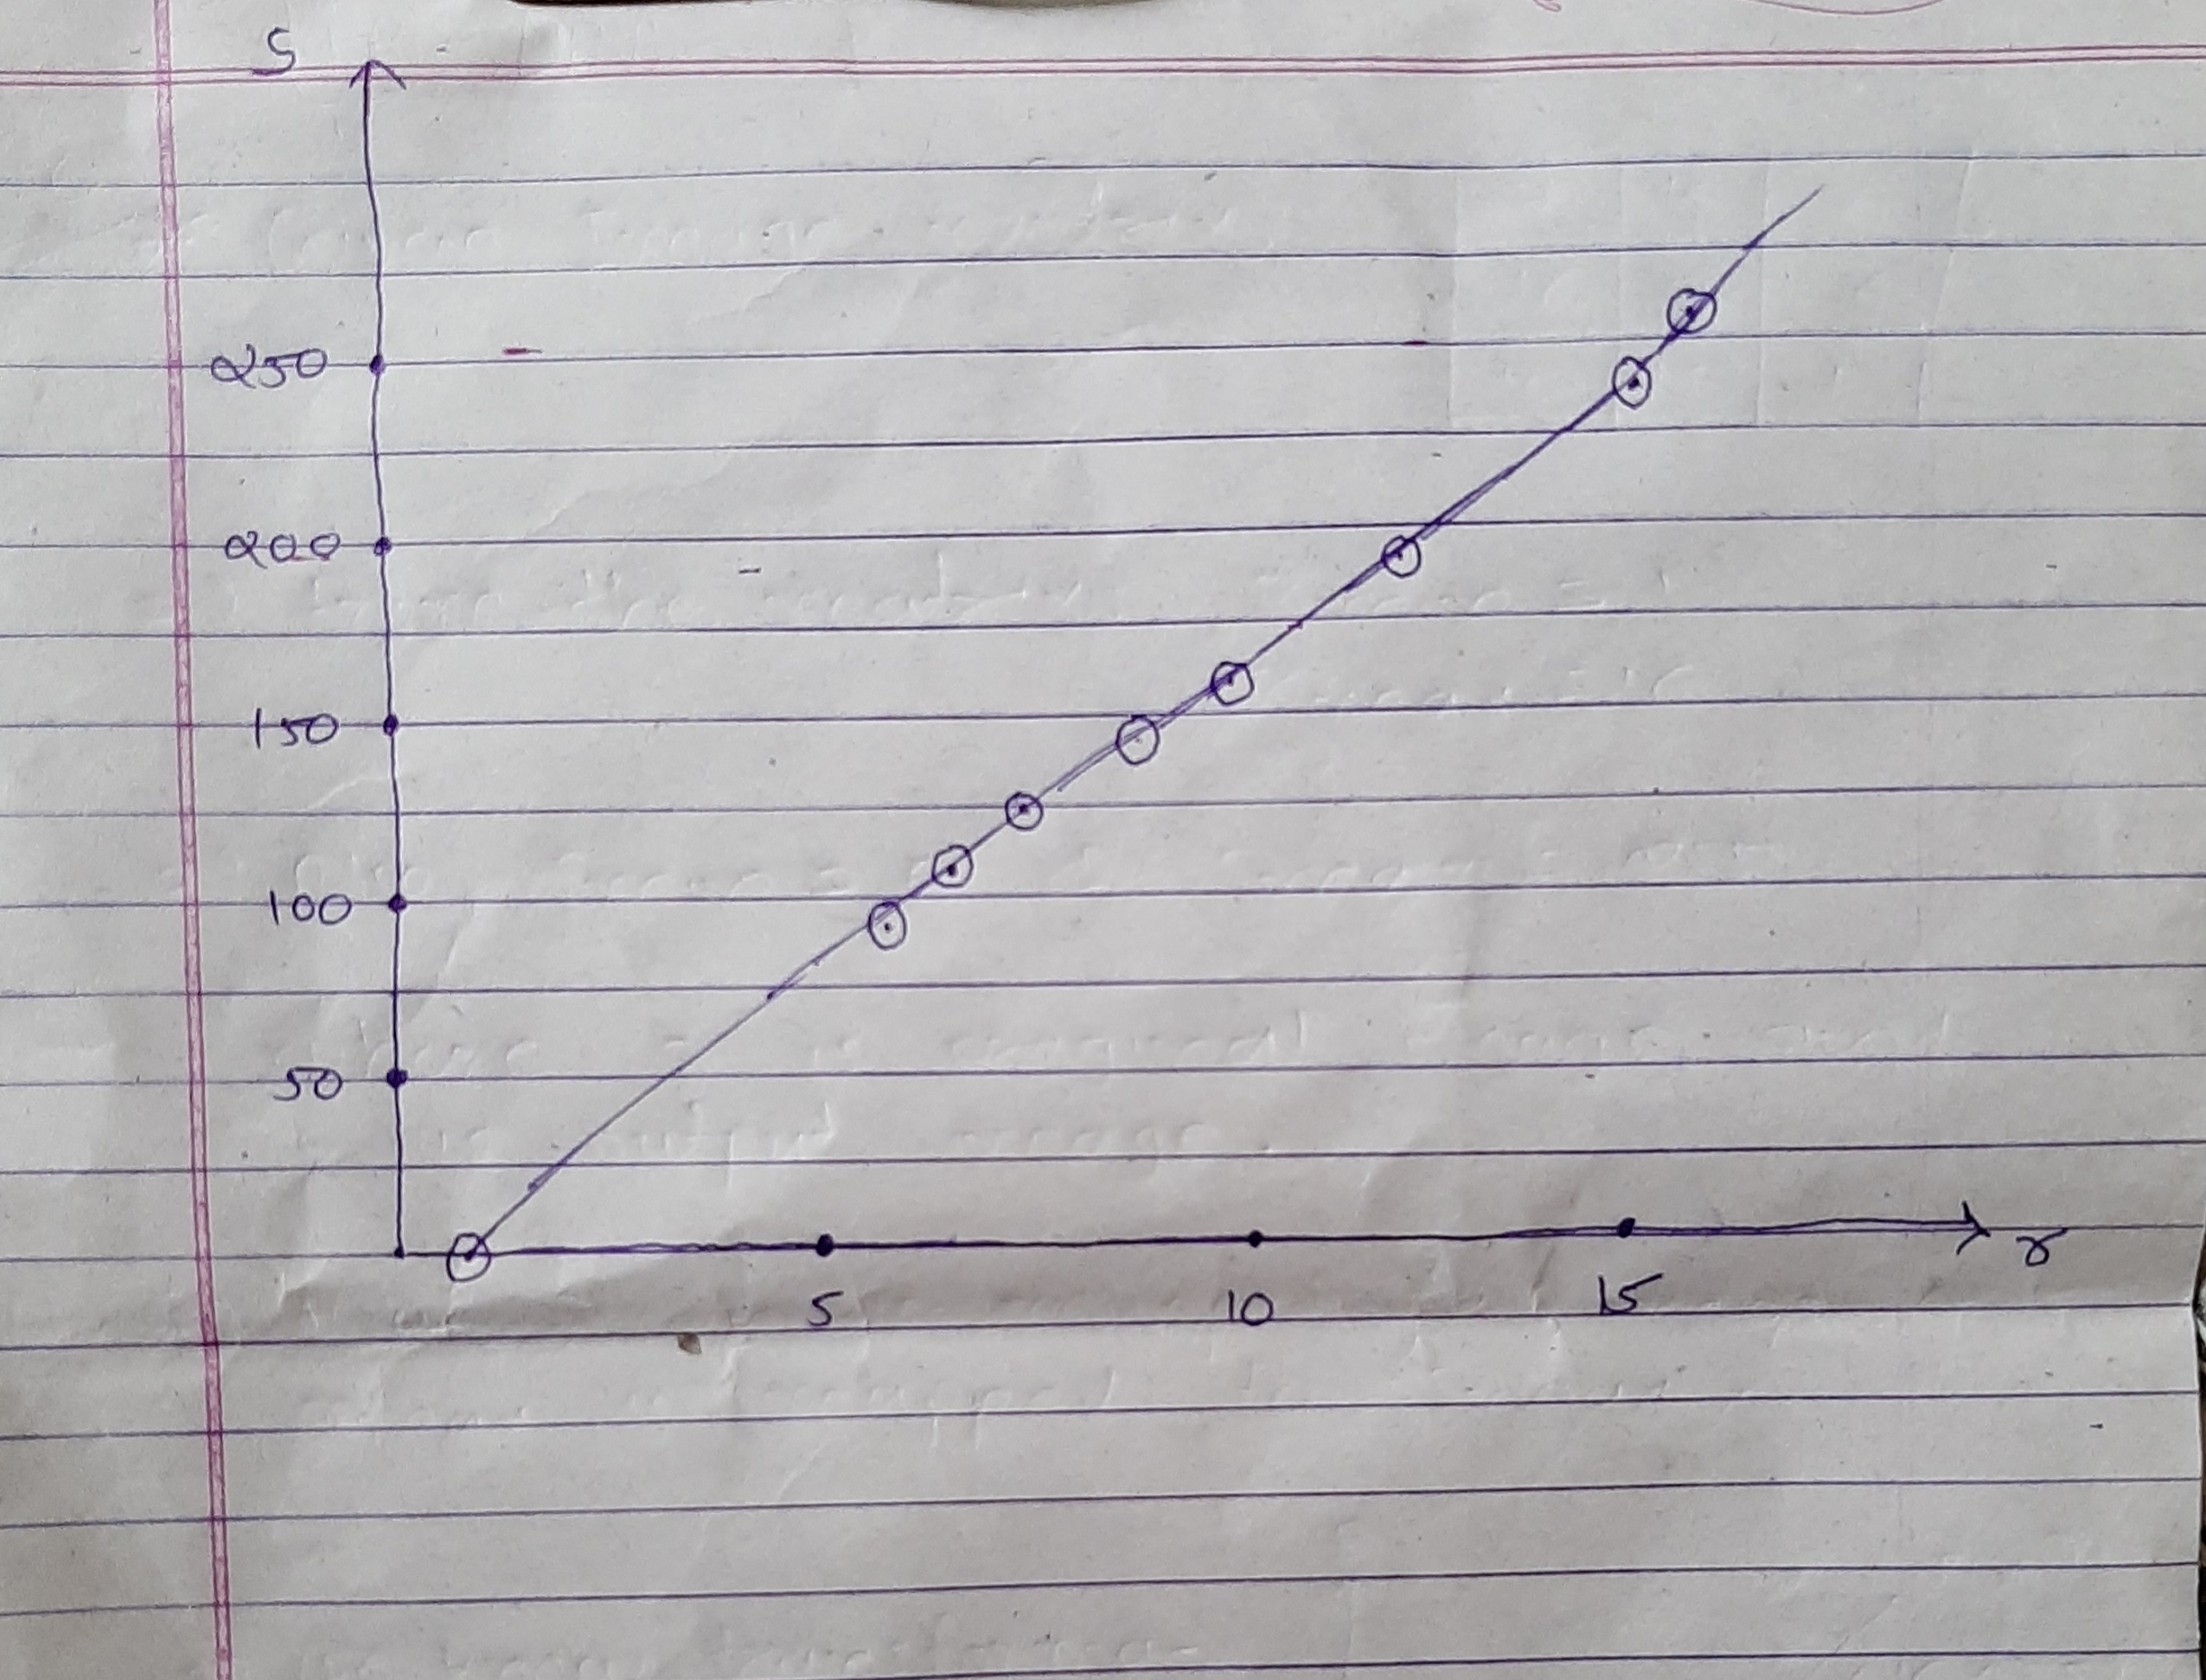 S
250
200
150
100
50
5 10 15 r